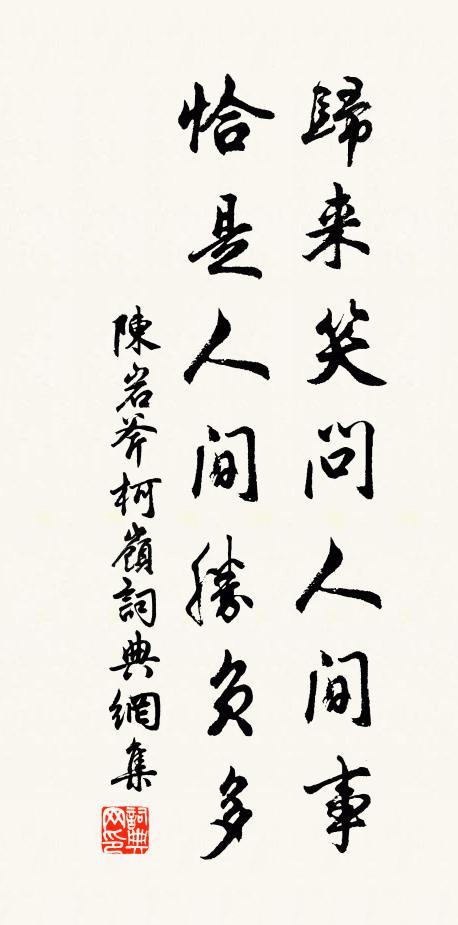 歸来笑問人間事
恰是人間勝負多
陳岩斧柯嶺詞典網集
詞典网印